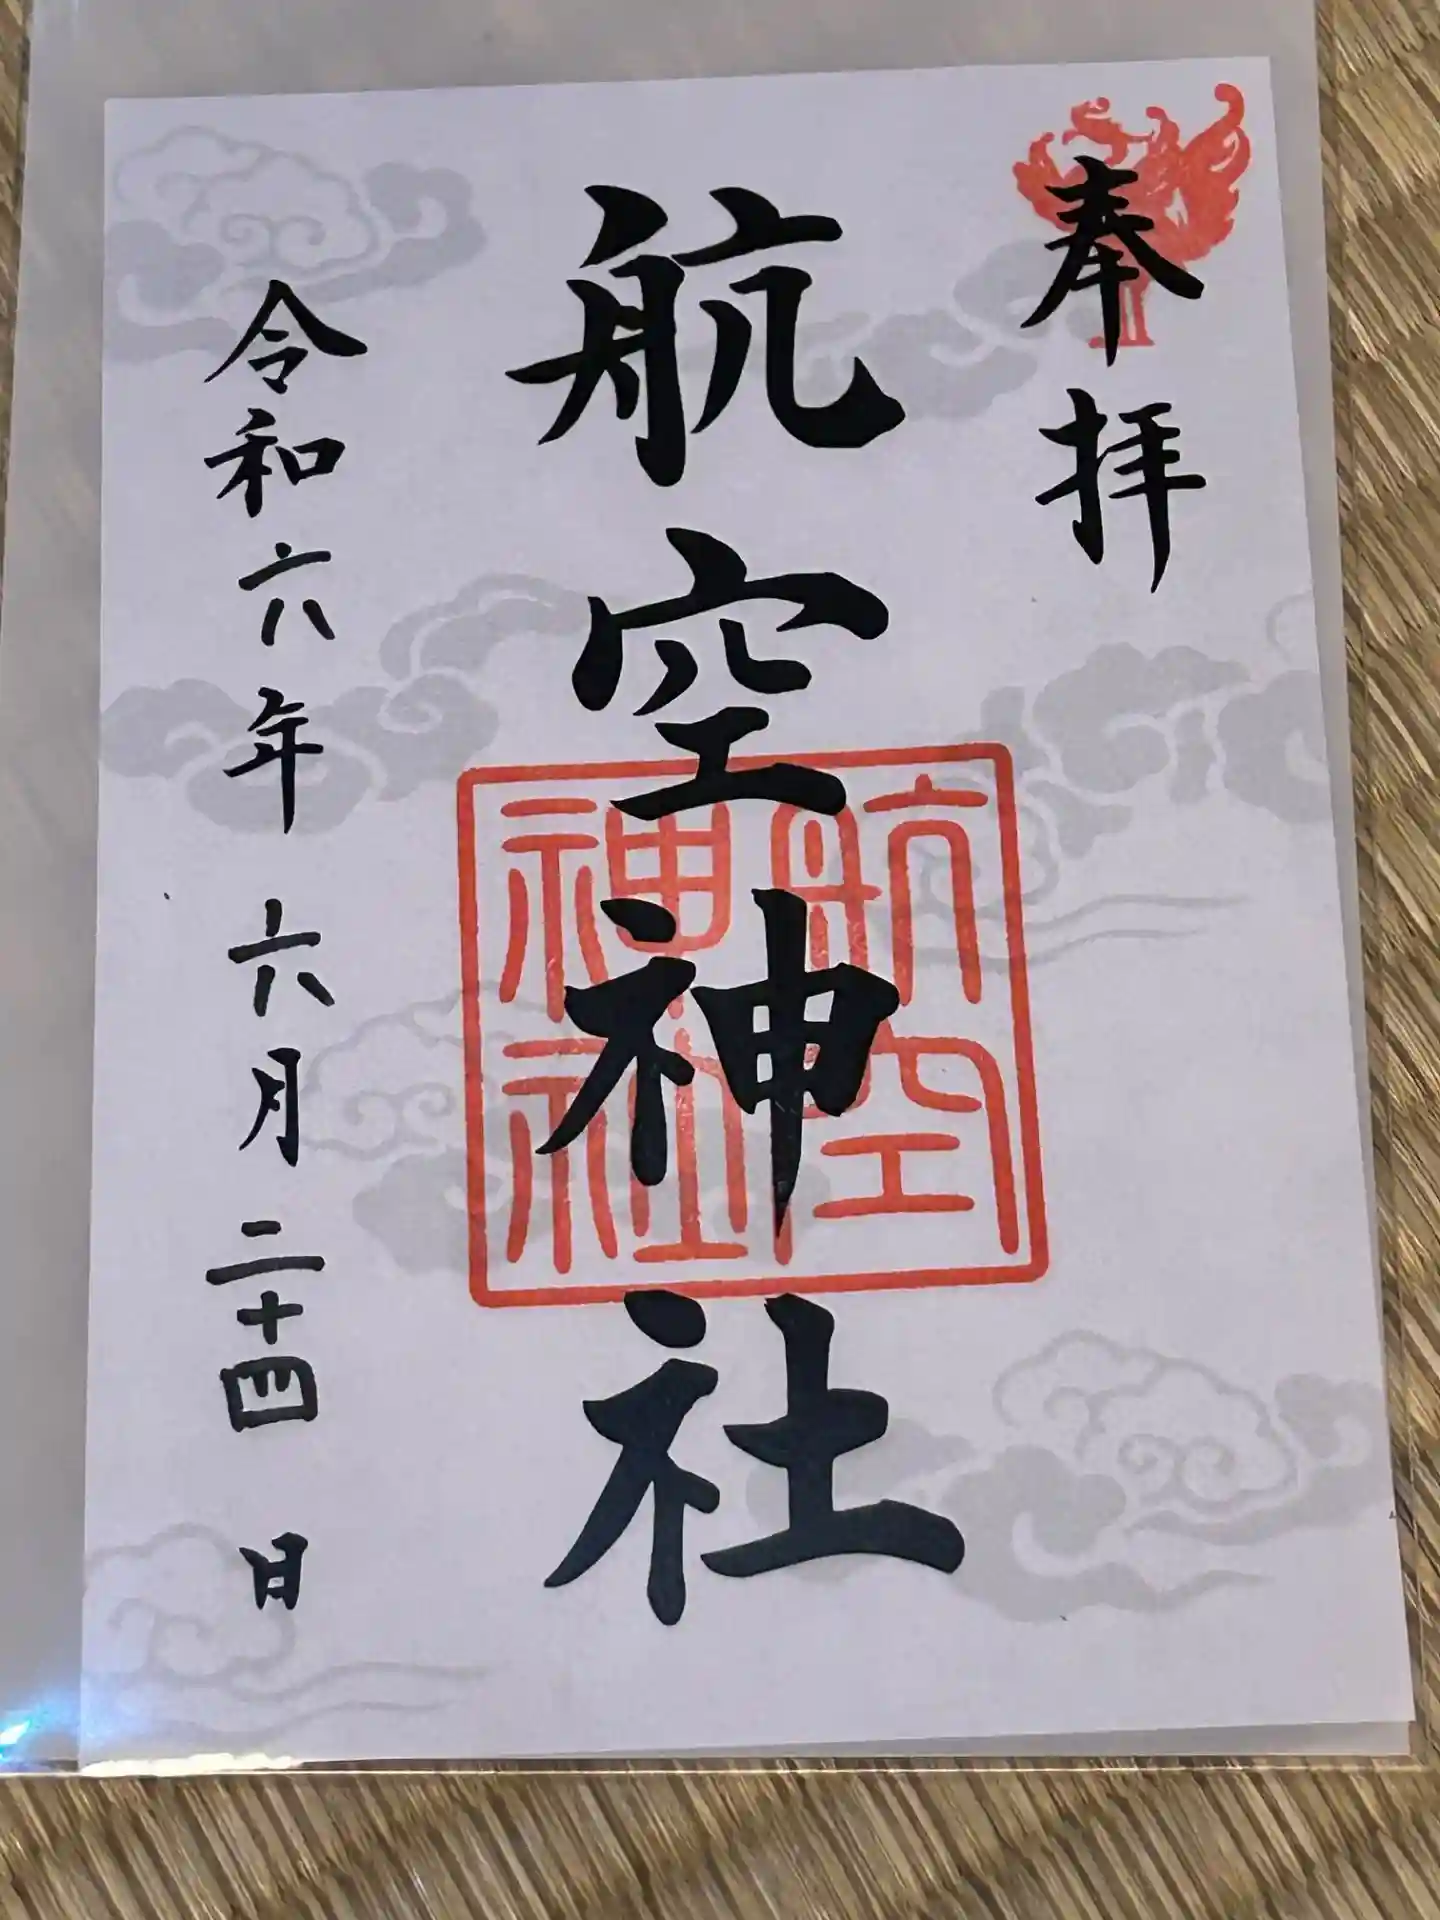 奉拝
航空神社
航空神社
令和六年 六月 二十四 日